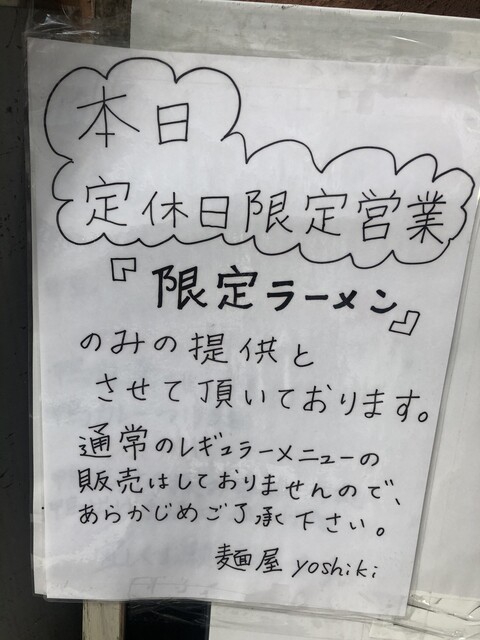 本日
定休日限定営業
『限定ラーメン』
のみの提供と
させて頂いております。
通常のレギュラーメニューの
販売はしておりませんので、
あらかじめご了承下さい。
麺屋 yoshiki